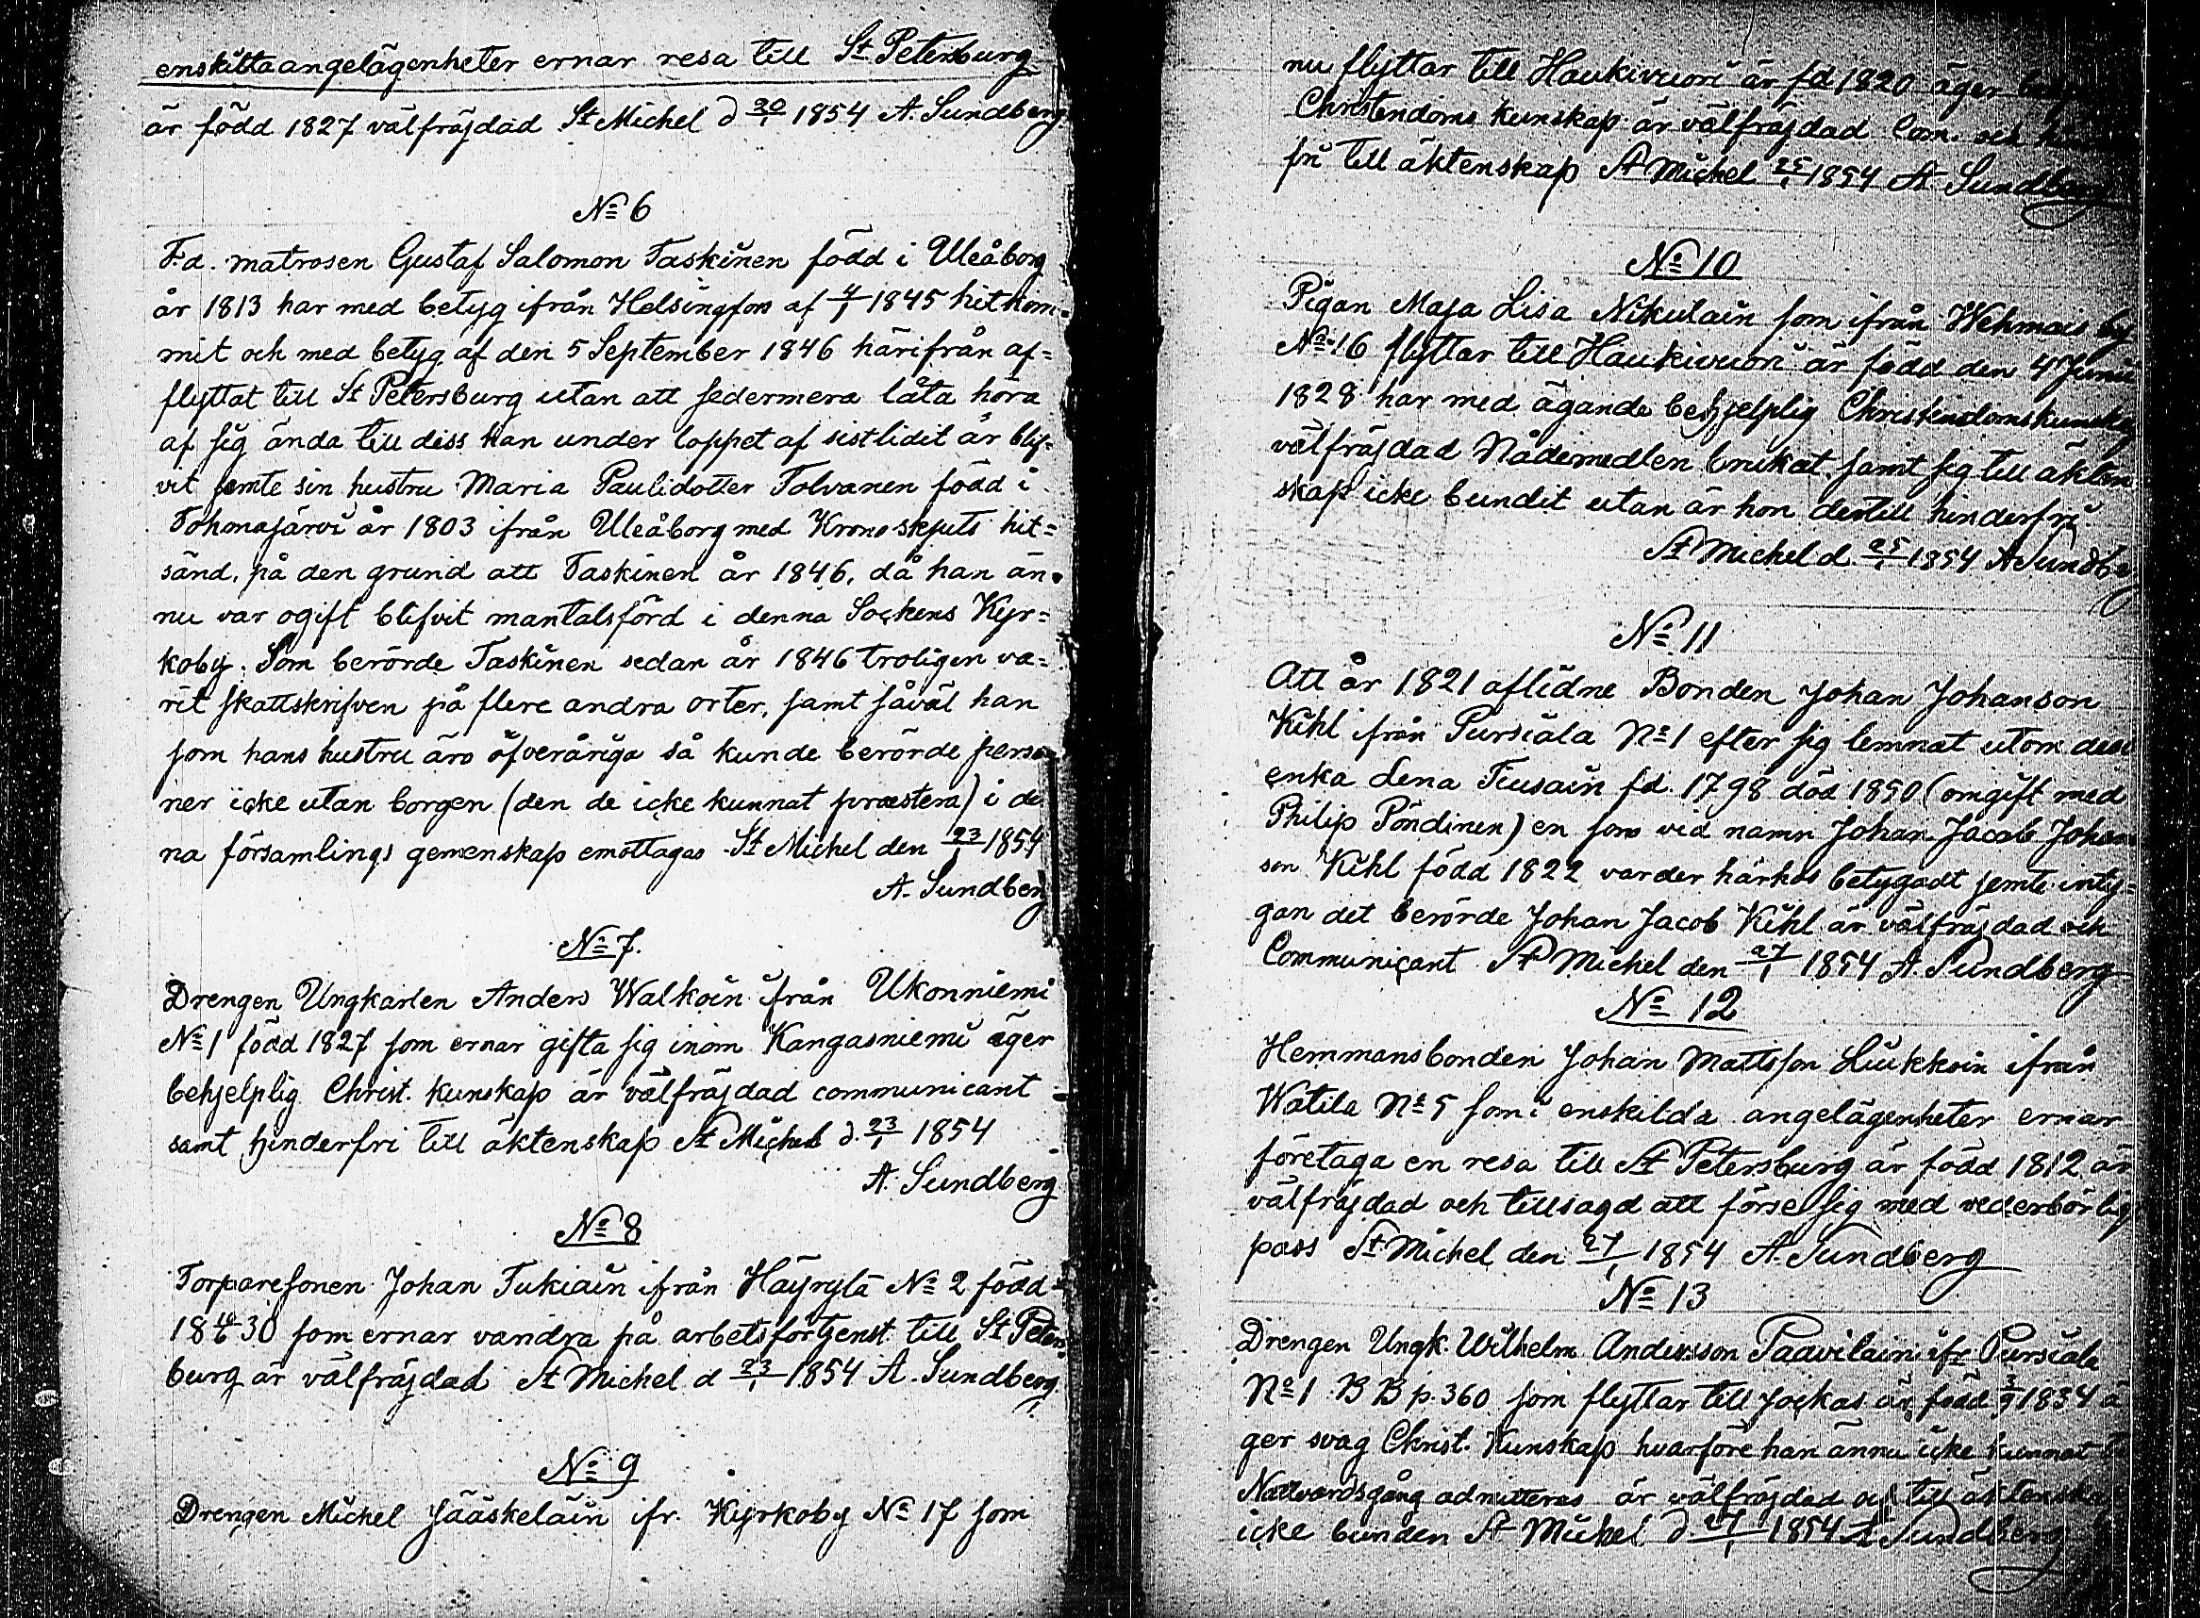 enskilta angelägenheter ernar resa till St Petersburg
är född 1827 välfräjdad St Michel d 20/1 1854 A. Sundberg
No 6
F.d. matrosen Gustaf Salomon Taskinen född i Uleåborg
år 1813 har med betyg ifrån Helsingfors af 4/1 1845 hitkom-
mit och med betyg af den 5 September 1846 härifrån af=
flyttat till St Petersburg utan att sedermera låta höra
af sig ända till diss han under loppet af sistlidit år blif-
vit jemte sin hustru Maria Paulidotter Tolvanen född i
Tohmajärvi år 1803 ifrån Uleåborg med Krono skjuts hit=
sänd, på den grund att Taskinen år 1846, då han än-
nu var ogift blifvit mantalsförd i denna Sockens Kyr=
koby. Som berörde Taskinen sedan år 1846 troligen va=
rit skattskrifven på flere andra orter, samt såväl han
som hans hustru äro öfveråriga så kunde berörde perso
ner icke utan borgen (den de icke kunnat præstera) i de
na församlings gemenskap emottagas St Michel den 23/1 1854
A. Sundberg
No 7.
Drengen Ungkarlen Anders Walkoin ifrån Ukonniemi
No 1 född 1827 som ernar gifta sig inom Kangasniemi äger
behjelplig Christ. kunskap är välfräjdad communicant
samt hinderfri till äktenskap St Michel d. 23/1 1854
A. Sundberg
No 8
Torparesonen Johan Tukiain ifrån Häyrylä No 2 född
1830 som ernar vandra på arbetsförtjenst till St Peters
burg är välfräjdad St Michel d 23/1 1854 A. Sundberg
No 9
Drengen Michel Jääskeläin ifr. Kyrkoby No 17 som
nu flyttar till Haukivuori är fd 1820 äger
Christendoms kunskap är välfräjdad Com. och
fri till äktenskap St Michel 25/1 1854 A. Sundberg
No 10
Pigan Maja Lisa Nikulain som ifrån Wehmais by
No 16 flyttar till Haukivuori är född den 4 Junii
1828 har med ägande behjelplig Christendomskunskap
välfräjdad Nådemedlen brukat samt sig till äkten
skap icke bundit utan är hon dertill hinderfri.
St Michel d. 25/1 1854 A Sundberg
No 11
Att år 1821 aflidne Bonden Johan Johanson
Kihl ifrån Pursiala No 1 efter sig lemnat utom dess
enka Lena Tiusain fd. 1798 död 1850 (omgift med
Philip Pöndinen) en son vid namn Johan Jacob Johan
son Kihl född 1822 varder härhos betygadt jemte inty=
gan det berörde Johan Jacob Kihl är välfräjdad och
Communicant St Michel den 27/1 1854 A. Sundberg
No 12
Hemmansbonden Johan Mattsson Liukkoin ifrån
Watila No 5 som i enskilda angelägenheter ernar
företaga en resa till St Petersburg är född 1812 är
välfräjdad och tillsagd att förse sig med vederbörlig
pass St Michel den 27/1 1854 A. Sundberg
No 13
Drengen Ungk. Wilhelm Andersson Paavilain ifr Pursiala
No 1 B B p. 360 som flyttar till Jockas är född 3/9 1834 ä
ger svag Christ. Kunskap hvarföre han ännu icke kunnat
Nattvardsgång admitteras är välfräjdad och till äktenskap
icke bunden St Michel d 27/1 1854 A Sundberg